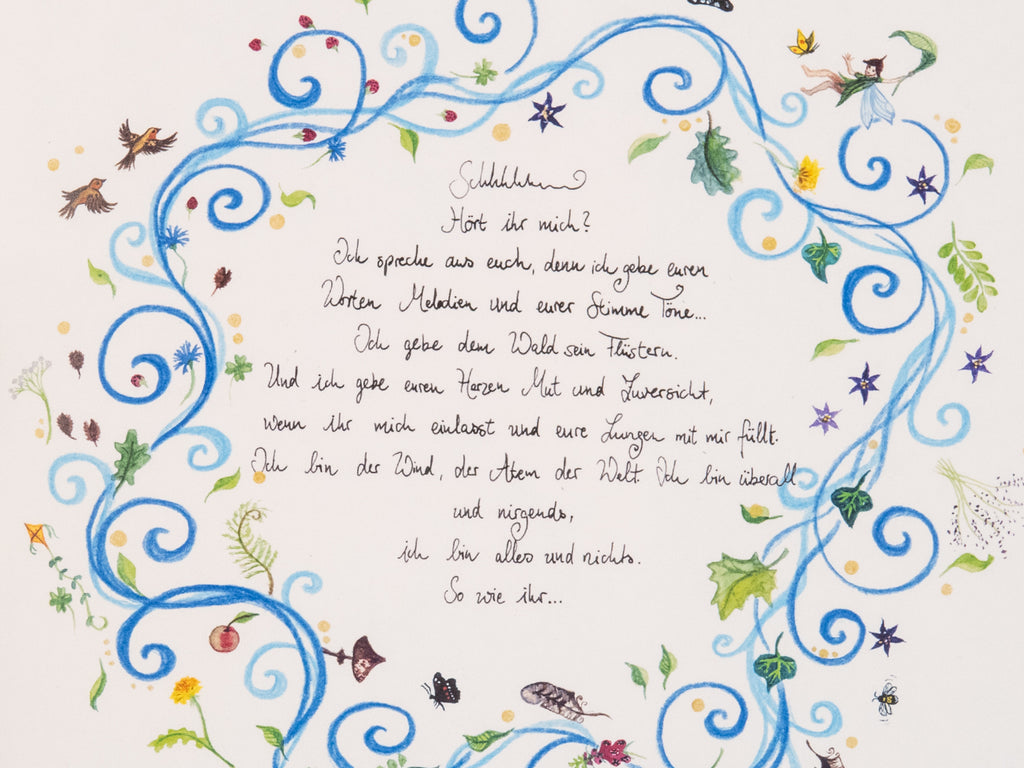 Schhhhhhh
Hört ihr mich?
Ich spreche aus euch, denn ich gebe euren
Worten Melodien und eurer Stimme Töne...
Ich gebe dem Wald sein Flüstern.
Und ich gebe euren Herzen Mut und Zuversicht,
wenn ihr mich einlasst und eure Lungen mit mir füllt.
Ich bin der Wind, der Atem der Welt. Ich bin überall
und nirgends,
ich bin alles und nichts.
So wie ihr...